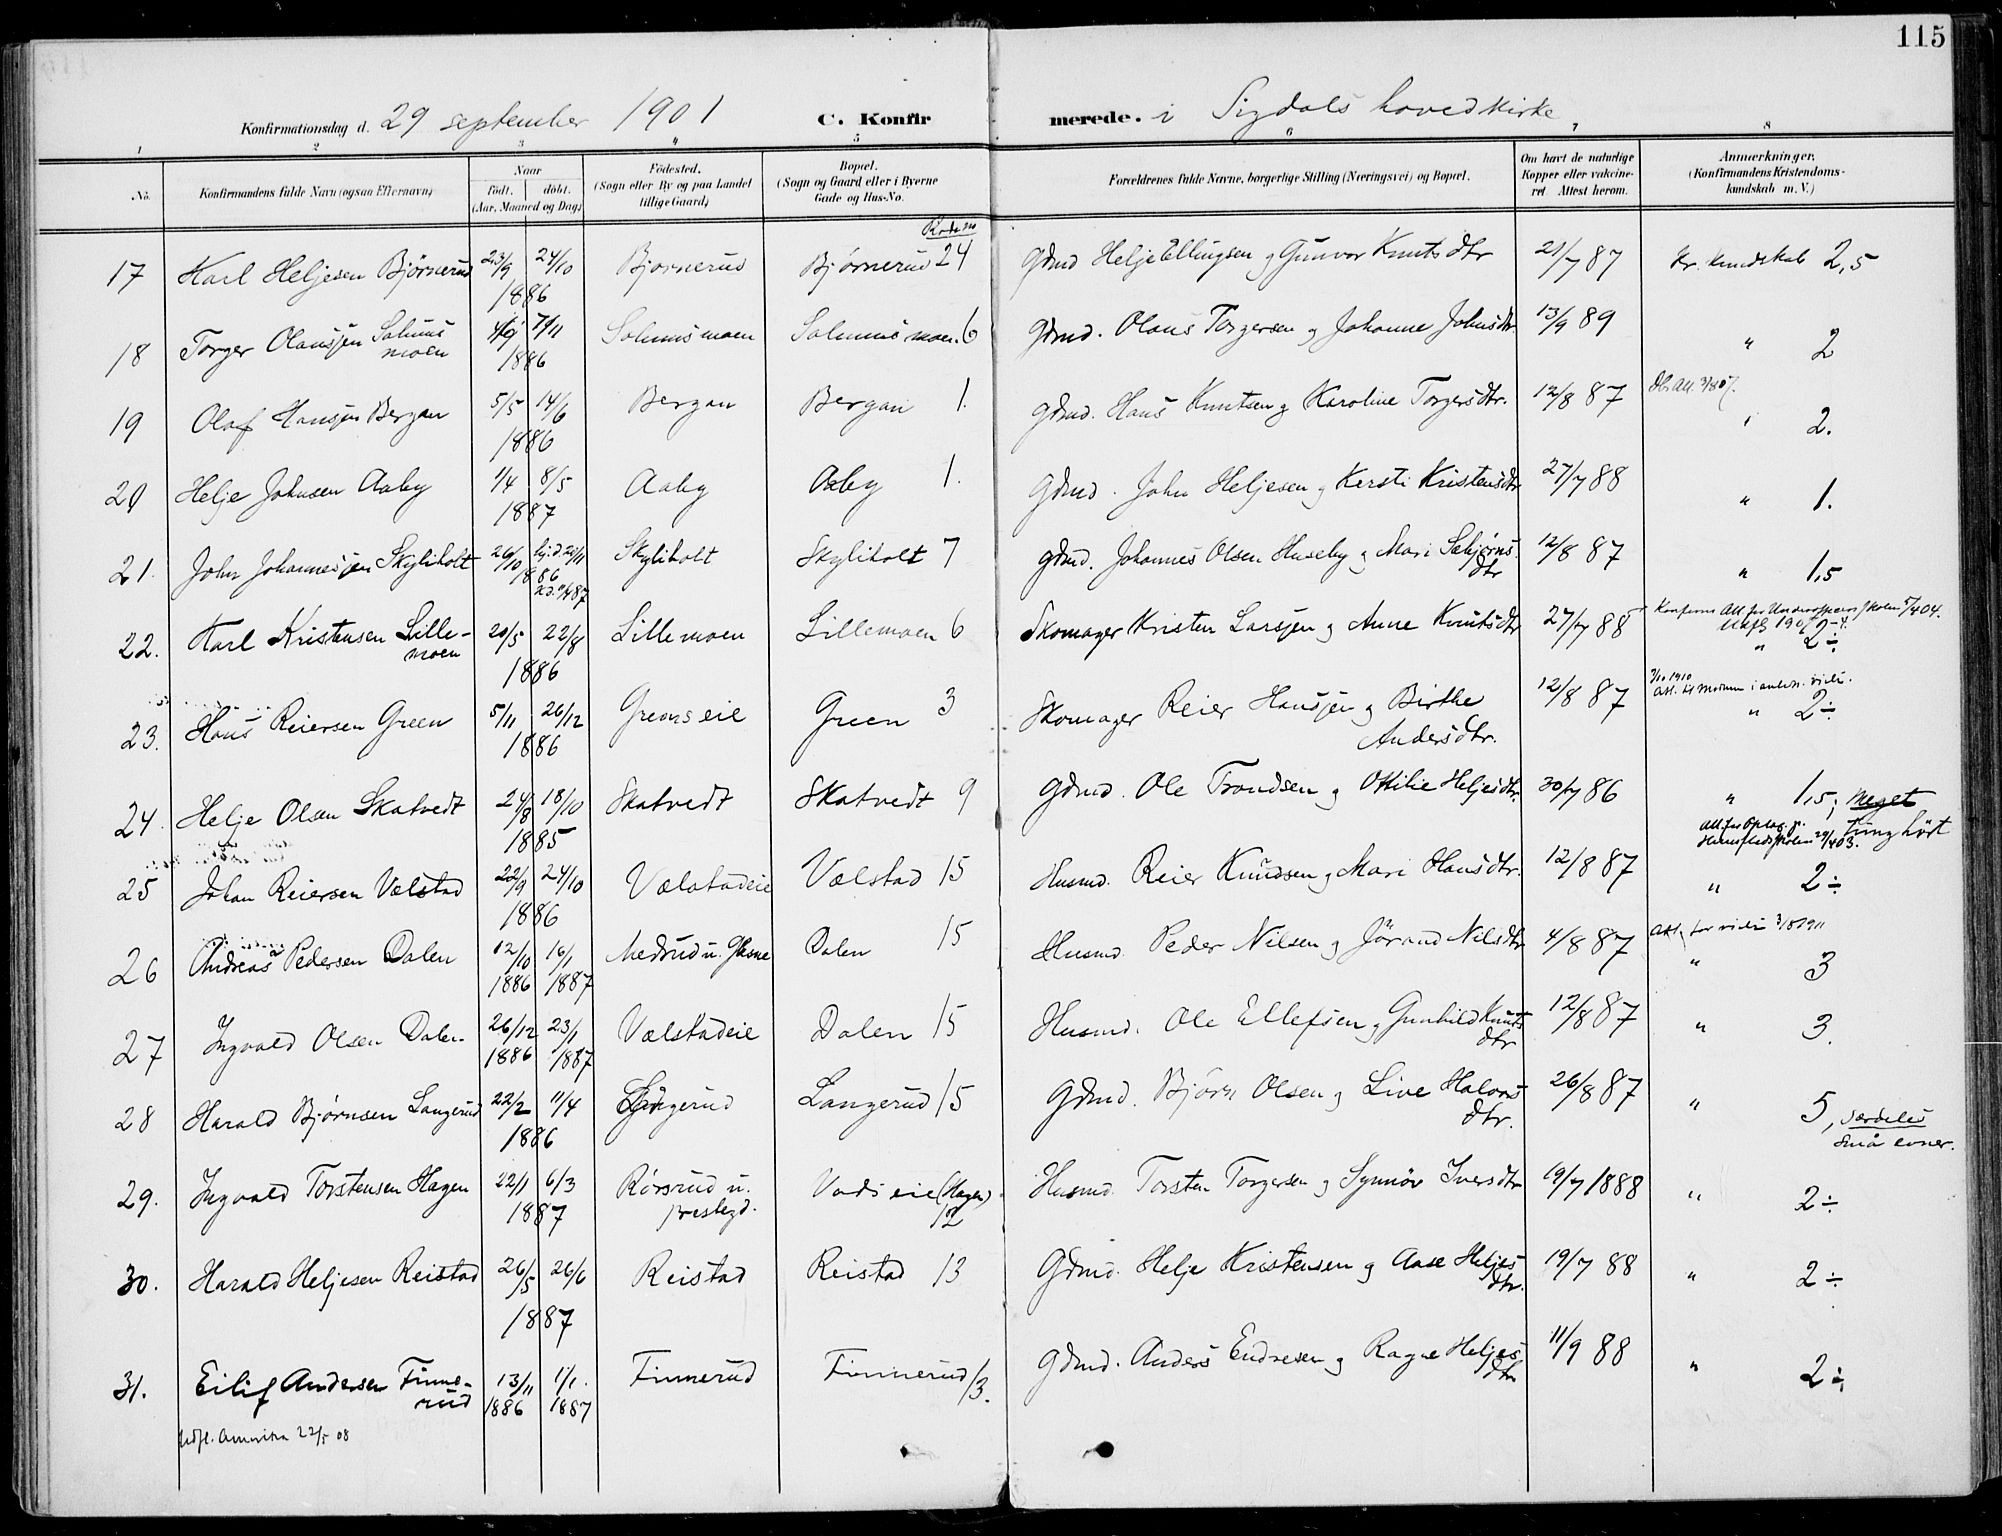 115
Konfirmationsdag d. 29 september 1901 C. Konfirmerede. i Sigdals hovedkirke
1 2 3 4 5 6 7 8
No. Konfirmandens fulde Navn (ogsaa Efternavn) Naar födt. döbt. (Aar, Maaned og Dag) Födested. (Sogn eller By og paa Landet tillige Gaard) Bopæl. (Sogn og Gaard eller i Byerne Gade og Hus-No. Forældrenes fulde Navne, borgerlige Stilling (Næringsvei) og Bopæl. Om havt de naturlige Kopper eller vakcineret. Attest herom. Anmærkninger. (Konfirmandens Kristendomskundskab m. V.)
17 Karl Heljesen Bjørnerud 23/9 24/10 1886 Bjørnerud Bjørnerud 24 Gdmd Helje Ellingsen g Gunvor Knutsdtr 21/7 87 Kr. kundskab 2,5
18 Torger Olaussen Solumsmoen 7/11 1886 Solumsmoen Solumsmoen. 6 Gdmd. Olaus Torgersen g Johanne Johnsdtr. 13/9 89 " 2
19 Olaf Hansen Bergan 5/5 14/6 1886 Bergan Bergan 1. Gdmd. Hans Knutsen g Karoline Torgersdtr. 12/8 87 " 2.
20 Helje Johnsen Aaby 1/4 8/5 1887 Aaby Aaby 1. Gdmd. John Heljesen g Kersti Kristensdtr 27/7 88 " 1.
21. John Johannessen Skyliholt 26/10 hj.d. 1886 Skyliholt Skyliholt 7 Gdmd. Johannes Olsen Huseby g Mari dtr 12/8 87 " 1,5
22. Karl Kristensen Lillemoen 20/5 22/8 1886 Lillemoen Lillemoen 6 Skomager Kristen Larssen g Anne Knutsdtr 27/7 88 " 2÷
23. Hans Reiersen Green 5/11 26/12 1886 Greenseie Green 3 Skomager Reier Hanssen g Birthe Andersdtr. 12/8 87 " 2÷
24. Helje Olsen Skatvedt 24/8 18/10 1885 Skatvedt Skatvedt 9 Gdmd. Ole Trondsen g Ottilie Heljesdtr. 30/7 86 " 1,5; meget tunghört
25 Johan Reiersen Vælstad 22/9 24/10 1886 Vælstadeie Vælstad 15 Husmd. Reier Knudsen g Mari Hansdtr. 12/8 87 " 2÷
26 Andreas Pedersen Dalen 12/10 1886 16/1 1887 Medrud u. Dalen 15 Husmd. Peder Nilsen g Jørand Nilsdtr 4/8 87 " 3
27 Ingvald Olsen Dalen 26/12 1886 23/1 1887 Vælstadeie Dalen 15 Husmd. Ole Ellefsen g Gunhild Knutsdtr 12/8 87 " 3.
28 Harald Bjørnsen Langerud 22/2 11/4 1886 Langerud Langerud 15 Gdmd. Bjørn Olsen g Live Halvorsdtr. 26/8 87 " 5, særdeles små evner.
29. Ingvald Torstensen Hagen 22/1 6/3 1887 Rörsrud u. prestegd. Vads eie (Hagen) 12 Husmd. Torsten Torgersen g Synnöv Iversdtr 19/7 1888 " 2÷
30. Harald Heljesen Reistad 26/5 26/6 1887 Reistad Reistad 13 Gdmd. Helje Kristensen g Aase Heljesdtr. 19/7 88 " 2÷
31. Eilif Andersen Finnerud 13/11 1886 1/1. 1887 Finnerud Finnerud 13. Gdmd. Anders Endresen g Ragne Heljesdtr 11/9 88 " 2÷
Udfl. Amerika 22/5 08